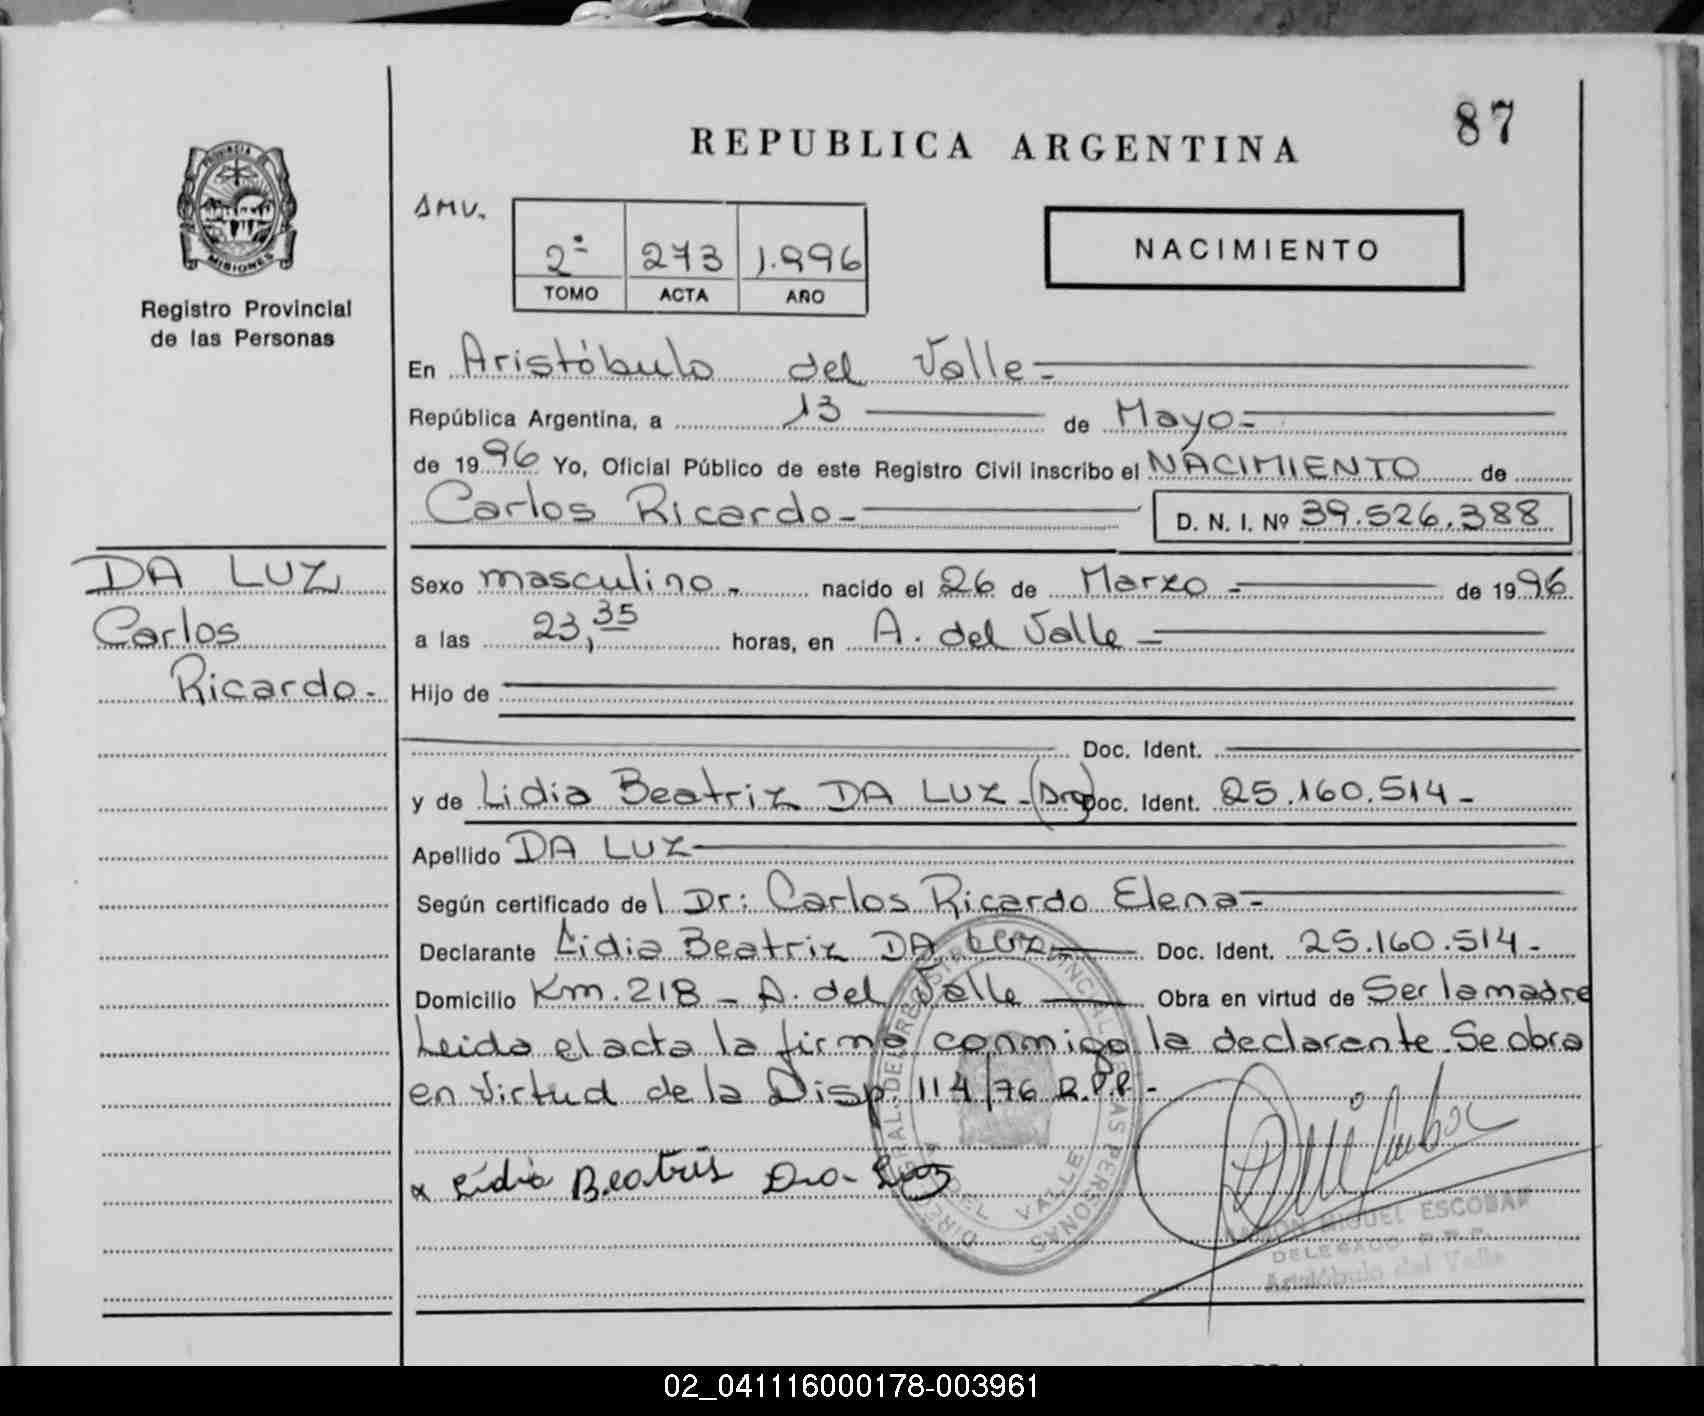 87
REPUBLICA ARGENTINA
PROVINCIA DE
MISIONES
Registro Provincial
de las Personas
SMV.
2º 273 1.996
TOMO ACTA AÑO
NACIMIENTO
En Aristóbulo del Valle-
República Argentina, a 13 de Mayo-
de 1996 Yo, Oficial Público de este Registro Civil inscribo el NACIMIENTO de
Carlos Ricardo- D. N. I. Nº 39.526.388
DA LUZ
Carlos
Ricardo-
Sexo masculino - nacido el 26 de Marzo - de 1996
a las 23,35 horas, en A. del Valle -
Hijo de
Doc. Ident.
y de Lidia Beatriz DA LUZ - (Arg) Doc. Ident. 25.160.514 -
Apellido DA LUZ
Según certificado del Dr: Carlos Ricardo Elena-
Declarante Lidia Beatriz DA LUZ Doc. Ident. 25.160.514 -
Domicilio Km. 218 - A. del Valle Obra en virtud de Ser la madre
Leida el acta la firma conmigo la declarante. Se obra
en virtud de la Disp. 114/76 R.P.P. -
x Lidia Beatris Da Luz
DEL VALLE
MIGUEL ESCOBAR
DELEGADO R.P.P.
Aristóbulo del Valle
02_041116000178-003961